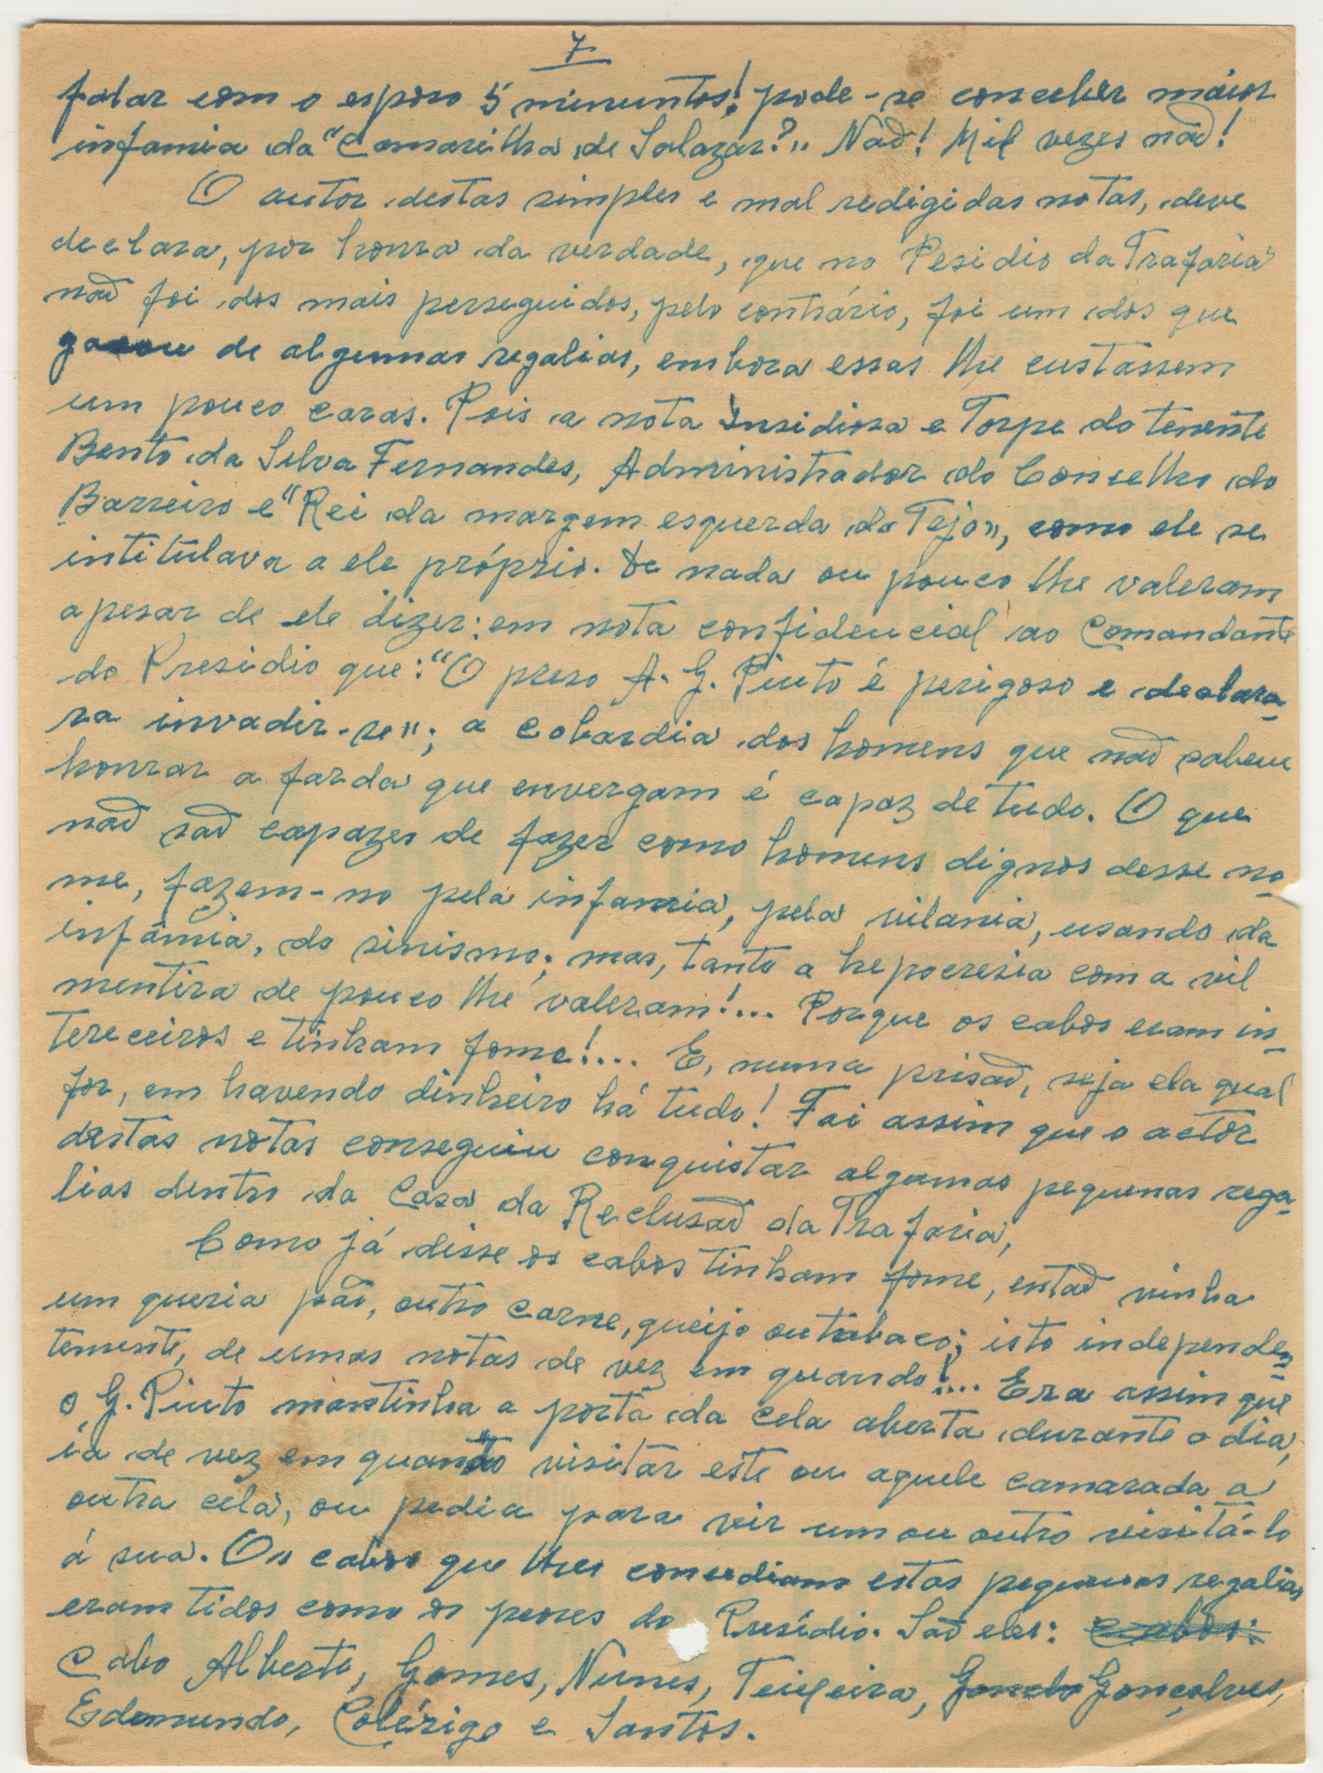 7
falar com o esposo 5 minuntos! pode-se conceber maior
infamia da "Camarilha de Salazar?" Não! Mil vezes não!
O autor destas simples e mal redigidas notas, deve
declara, por honra da verdade, que no Pesidio da Trafaria
não foi dos mais perseguidos, pelo contrário, foi um dos que
gosou de algumas regalias, embora essas lhe custassem
um pouco caras. Pois a nota Insidiosa e Torpe do tenente
Bento da Silva Fernandes, Administrador do Conselho do
Barreiro e "Rei da margem esquerda do Tejo", como ele se
intitulava a ele próprio. De nada ou pouco lhe valeram
apesar de ele dizer: em nota confidencial ao Comandante
do Presidio que: "O preso A. G. Pinto é perigoso e declara-
ra invadir-se"; a cobardia dos homens que não sabem
honrar a farda que envergam é capaz de tudo. O que
não são capazes de fazer como homens dignos desse no-
me, fazem-no pela infamia, pela vilania, usando da
infâmia, do sinismo; mas, tanto a hepocresia com a vil
mentira de pouco lhe valeram!... Porque os cabos eram in-
tereceiros e tinham fome!... E, numa prisão, seja ela qual
for, em havendo dinheiro há tudo! Foi assim que o actor
destas notas conseguiu conquistar algumas pequenas rega-
lias dentro da Casa da Reclusão da Trafaria;
Como já disse os cabos tinham fome, então vinha
um queria pão, outro carne, queijo ou tabaco; isto independen-
temente, de umas notas de vez em quando!... Era assim que
o G. Pinto mantinha a porta da cela aberta durante o dia,
ia de vez em quando visitar este ou aquele camarada a
outra cela, ou pedia para vir um ou outro visitá-lo
á sua. Os cabos que lhes consediam estas pequenas regalias
eram tidos como os peores do Presídio. São eles: Cabos:
Cabo Alberto, Gomes, Nunes, Teixeira, Gonçalves,
Edemundo, Colérigo e Santos.